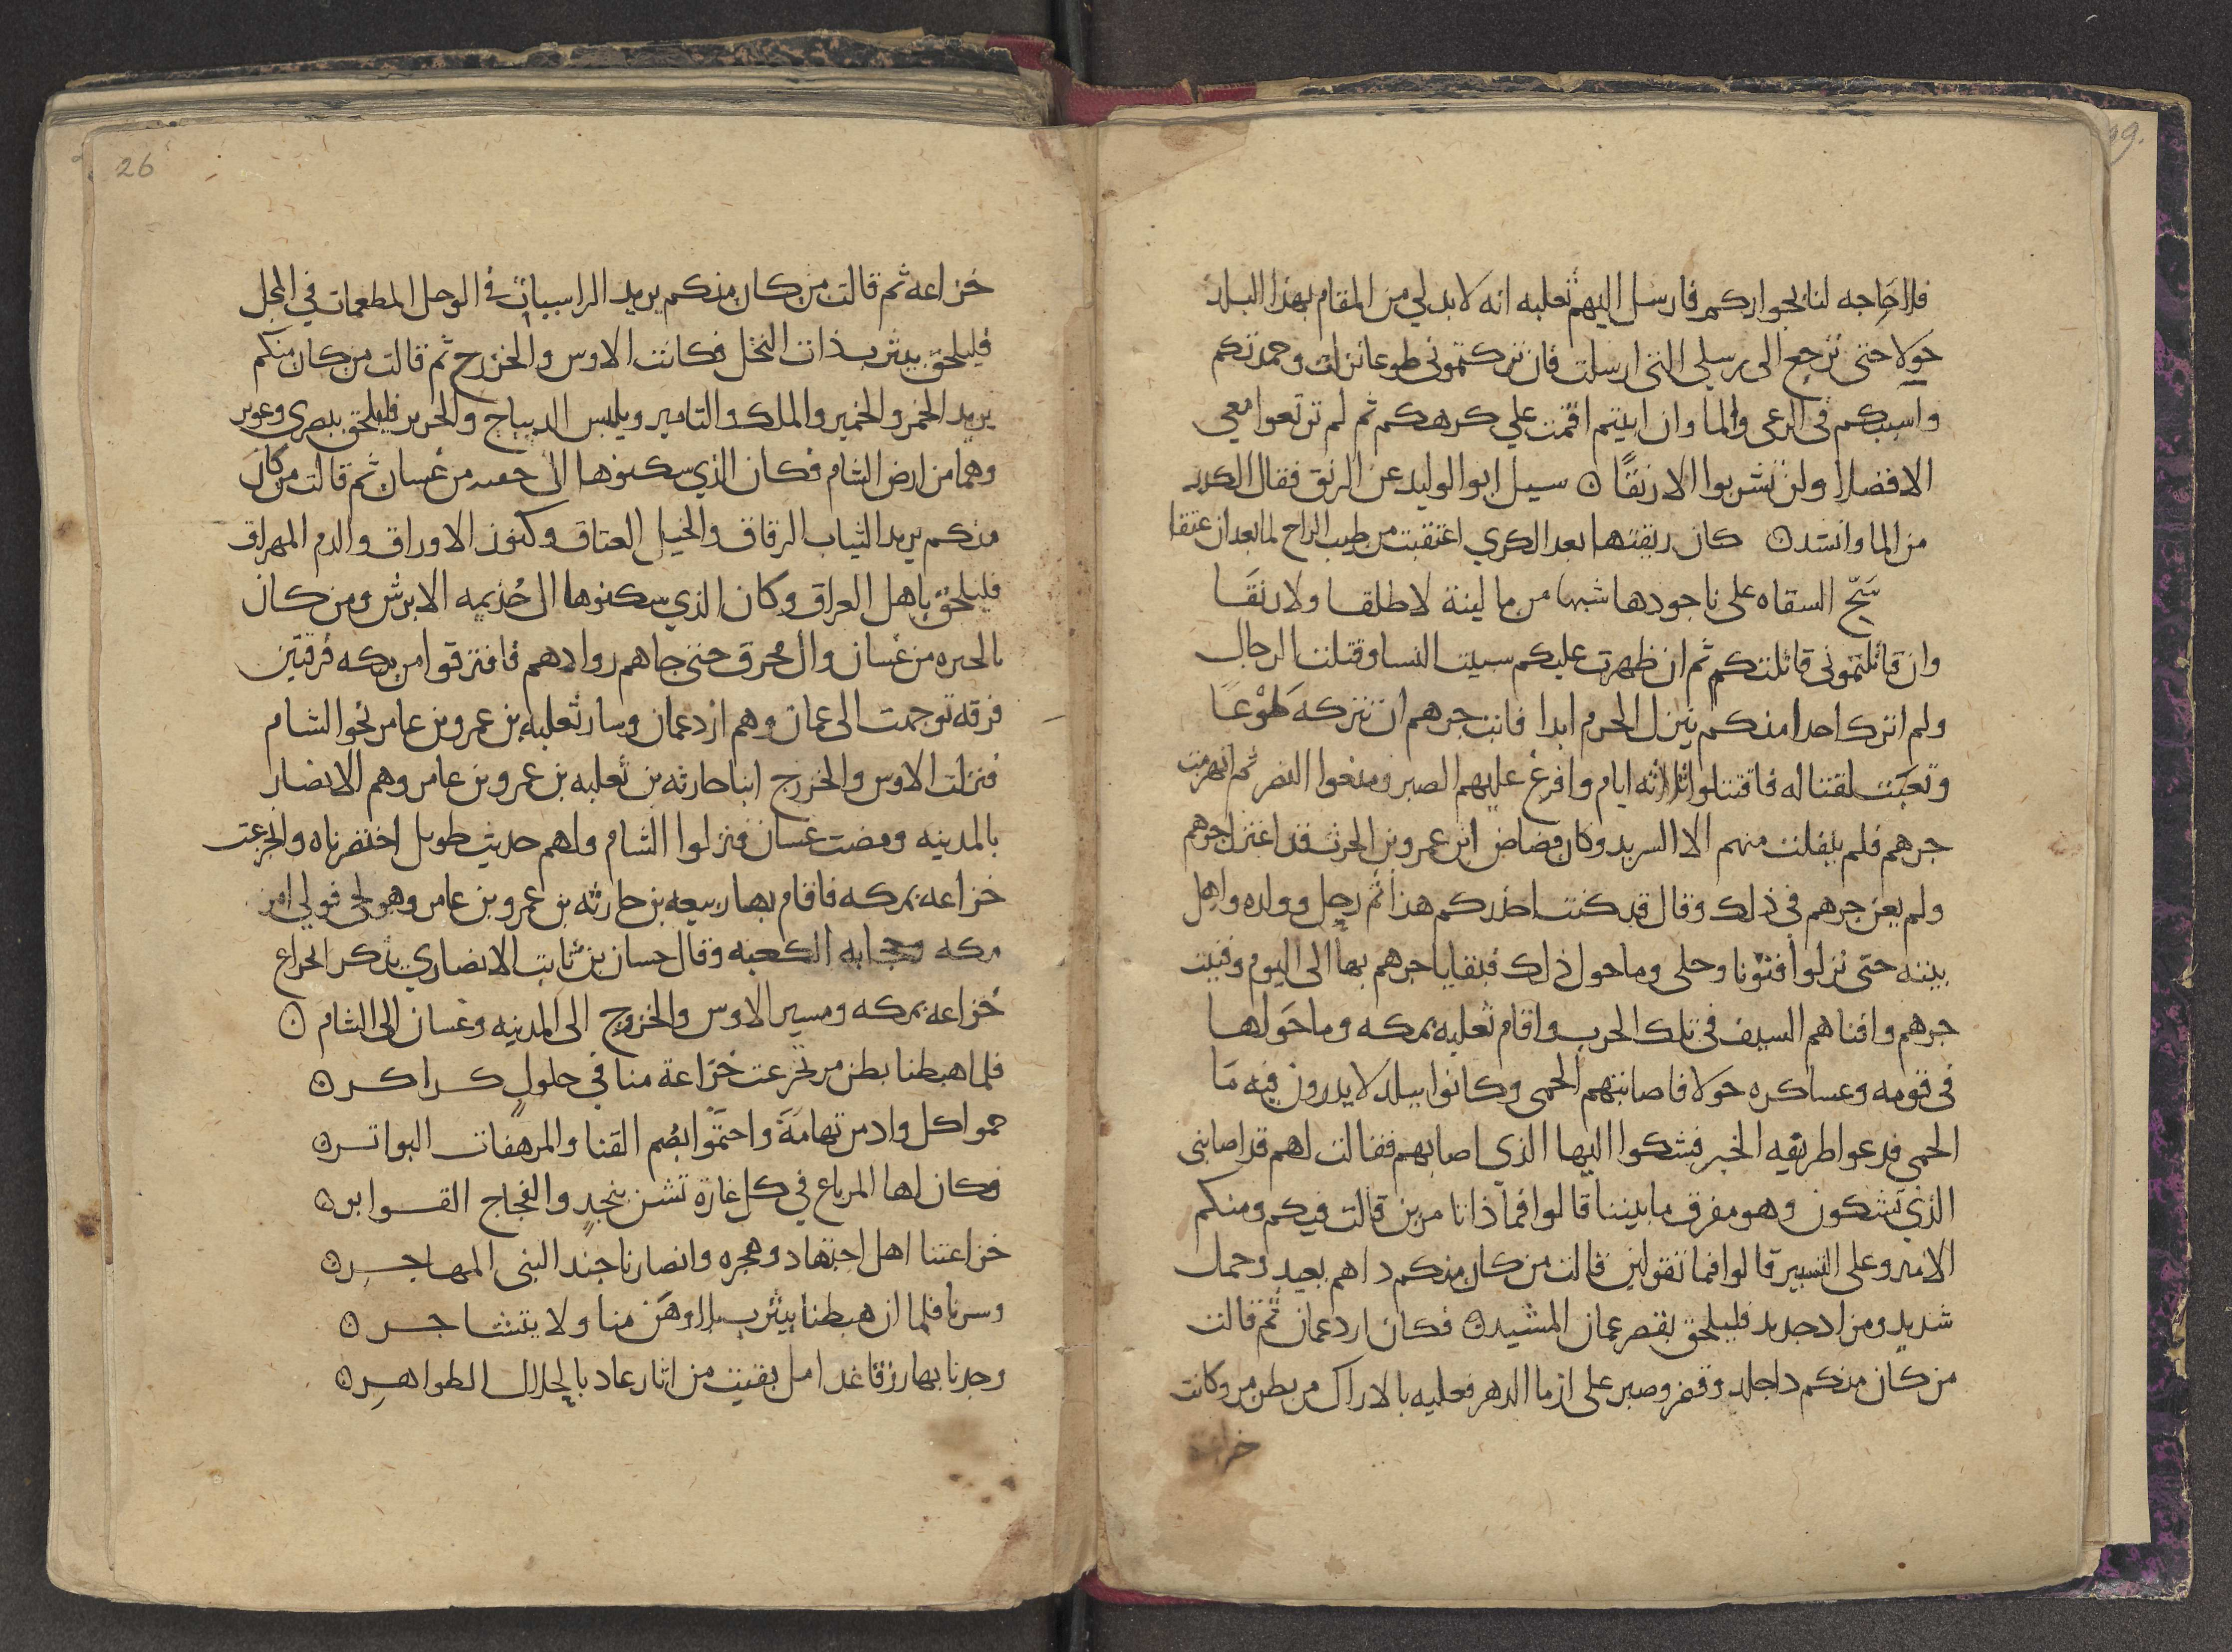 فلا حاجه لنا بجواركم فارسل اليهم ثعلبه انه لا بد لي من المقام بهذا البلد
حولا حتى ترجع الى رسلي التى ارسلت فان تركتموني طوعا نزلت وحمدتكم
واسيتكم في الرعى والما وان ابيتم اقمت علي كرهكم ثم لم ترتعوا معي
الا فضلا ولن تشربوا الا رنقا ۞ سيل ابو الوليد عن الرنق فقال الكدر
من الما وانشد ۞ كان ريقتها بعد الكري اغتقبت من طيب الراح لما بعد ان عتقا
سَحّ السقاه على ناجودها شبما من ما لينة لا طلقا ولا رنقَا
وان قاتلتموني قاتلتكم ثم ان ظهرت عليكم سبيت النسا وقتلت الرجال
ولم اترك احدا منكم ينزل الحرم ابدا فابت جرهم ان تتركه طَوْعًا
وتعبَت لقتاله فاقتتلوا ثلاثه ايام وافرغ عليهم الصبر ومنعوا النصر ثم انهزمت
جرهم فلم يفلت منهم الا الشريد وكان مضاض ابن عمرو بن الحرث قد اعتزل جرهم
ولم يعن جرهم في ذلك وقال قد كنت احذركم هذا ثم رحل وولده واهل
بيته حتى نزلوا قنونا وحلى وما حول ذلك فبقايا جرهم بها الى اليوم وفنيت
جرهم وافناهم السيف في تلك الحرب واقام ثعلبه بمكه وما حَولها
فى قومه وعساكره حَولا فاصابتهم الحمى وكانوا ببلد لا يدرون فيه مَا
الحمى فدعوا طريفه الخبر فشكوا اليها الذي اصابهم فقالت لهم قد اصابنى
الذي تشكون وهو مفرق ما بيننا قالوا فماذا تامرين قالت فيكم ومنكم
الامير وعلى التسيير قالوا فما تقولين قالت من كان منكم داهم بعيد وحمل
شديد ومزاد جديد فليلحق بقصر عمان المشيد ۞ فكان ازد عمان ثم قالت
من كان منكم دا جلد وقسر وصبر على ازما الدهر فعليه بالاراك من بطن مر وكانت
خزاعة
26
خزاعه ثم قالت من كان منكم يريد الراسيات في الوحل المطعمات في المحل
فليلحق بيثرب ذات النخل فكانت الاوس والخزرج ثم قالت من كان منكم
يريد الخمر والخمير والملك والتامير ويلبس الديباج والحرير فليلحق ببصرى وعوير
وهما من ارض الشام فكان الذي سكنوها ال جفنه من غسان ثم قالت من كان
منكم يريد الثياب الرقاق والخيل العتاق وكنوز الاوراق والدم المهراق
فليلحق باهل العراق وكان الذي سكنوها ال جُذيمه الابرش ومن كان
بالحيره من غسان وال محرق حتى جاهم روادهم فافترقوا من مكه فرقتين
فرقه توجهت الى عمان وهم ازد عمان وسار ثعلبه بن عمرو بن عامر نحو الشام
فنزلت الاوس والخزرج ابنا حارثه بن ثعلبه بن عمرو بن عامر وهم الانصار
بالمدينه ومضت غسان فنزلوا الشام ولهم حديث طويل اختصرناه وانخزعت
خزاعه بمكه فاقام بها ربيعه بن حارثه بن عمرو بن عامر وهو لحي فولي امر
مكه وحجابه الكعبه وقال حسان بن ثابت الانصاري يذكر انخزاع
خُزاعه بمكه ومسير الاوس والخزرج الى المدينه وغسان الى الشام ۞
فلما هبطنا بطن مر تخزعت خُزاعة منا في حلولٍ كراكر ۞
حموا كل واد من تهامَةَ واحتَمَوا بصُم القنا والمرهفات البواتر ۞
فكان لها المرباع في كل غارة تشن بنجدٍ والفجاج القوابر ۞
خزاعتنا اهل اجتهاد وهجره وانصارنا جند النبى المهاجر ۞
وسرنا فلما ان هبطنا بيثرب بلا وهَن منا ولا بتشاجر ۞
وجدنا بها رزقا غدامل بقيت من اثار عاد بالحلال الظواهر ۞